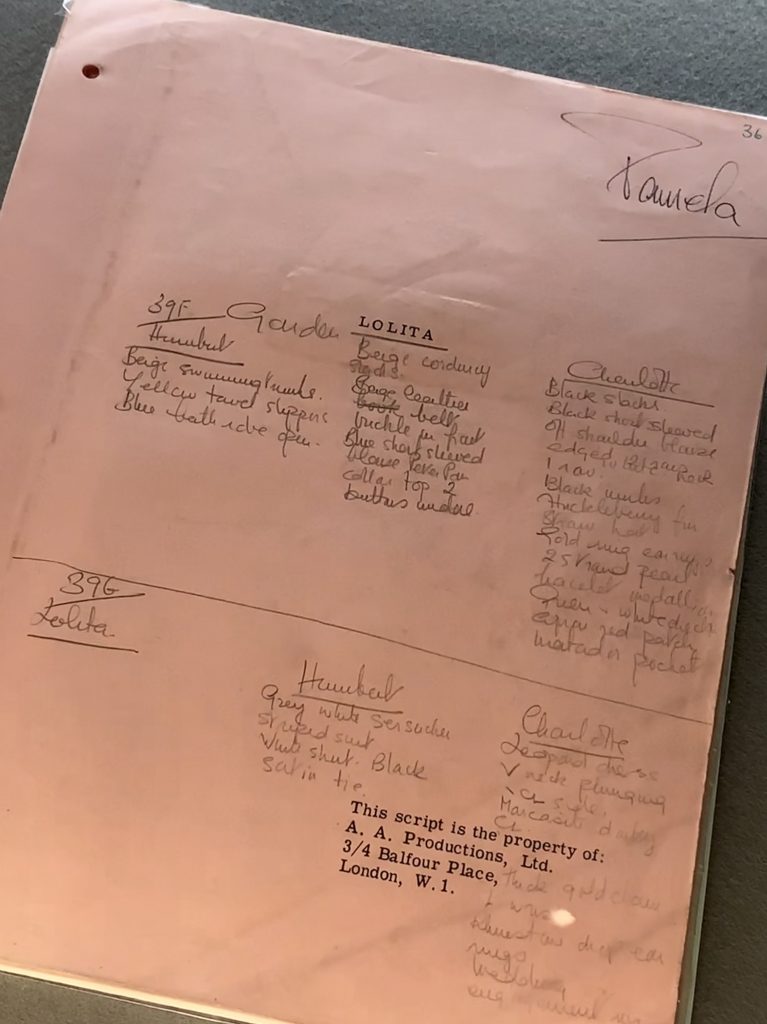 36
Pamela
39F Garden
LOLITA
Humbert
Beige swimming trunks.
Yellow towel slippers
Blue bath robe open.
Beige corduroy
slacks.
Beige
belt
buckle in front
Blue short sleeved
blouse Peter Pan
collar top 2
buttons undone.
Charlotte
Black slacks
Black short sleeved
off shoulder blouse
edged
Black mules
Huckleberry fin
straw hat
Gold ring earrings
2 Strand pearl
bracelet medallion
Green & white check
apron red patch
matador pocket
39G
Lolita
Humbert
Grey white sersucker
striped suit
White shirt. Black
satin tie.
Charlotte
Leopard dress
V neck plunging
Marcasite
This script is the property of:
A. A. Productions, Ltd.
3/4 Balfour Place,
London, W.1.
Thick gold chain
drop ear
rings
Wedding